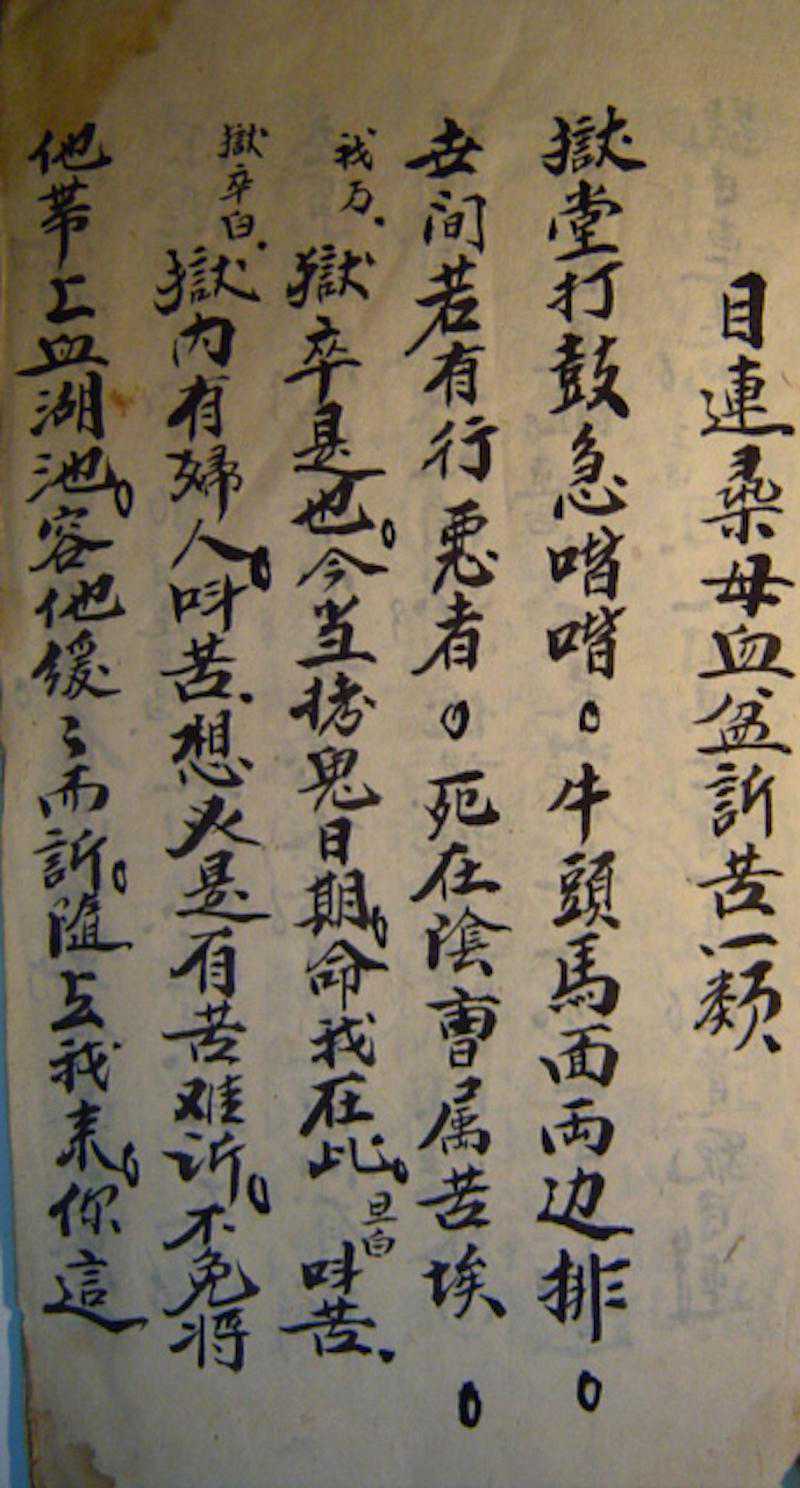 目連桑母血盆訴苦一類
獄堂打鼓急喈喈。牛頭馬面両边排。
世间若有行悪者。死在陰曹属苦埃。
我万、獄卒是也。今当拷鬼日期。命我在此。旦白叫苦、
獄卒白、獄内有婦人。叫苦、想必是有苦难訴。不免将
他帯上血湖池。容他缓〻而訴。隨上我来。你這